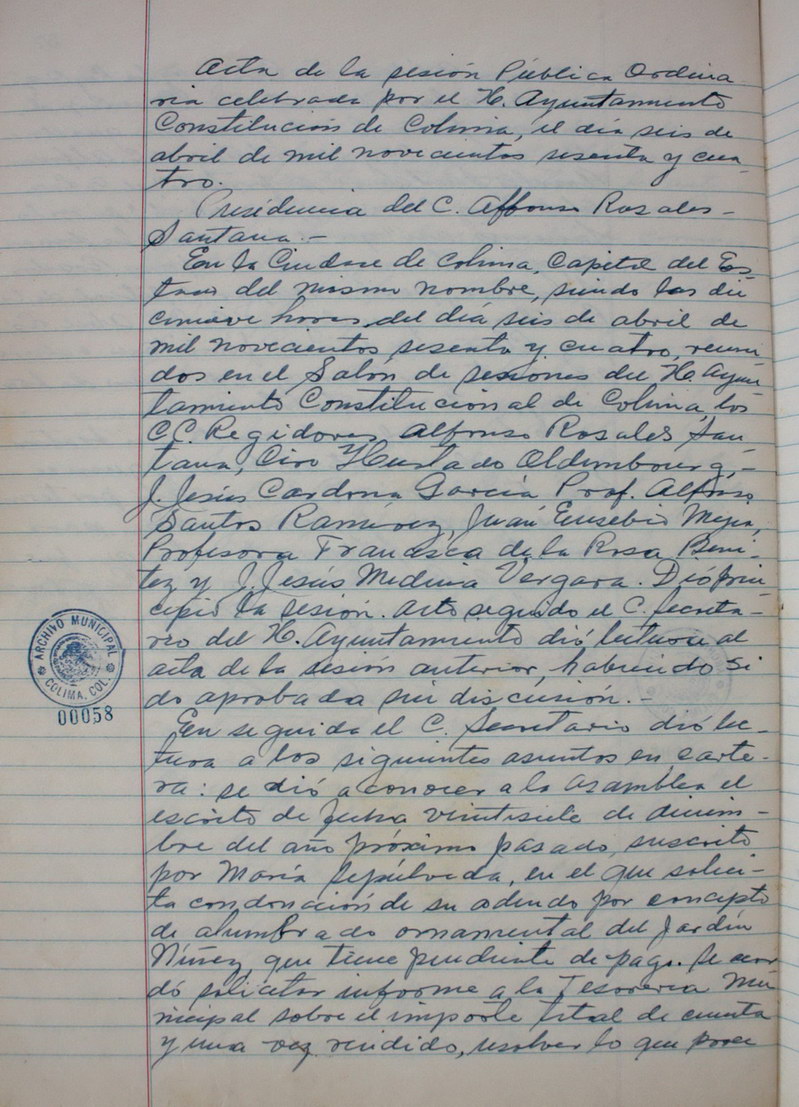 Acta de la sesión Pública Ordina
ria celebrada por el H. Ayuntamiento
Constitución de Colima, el día seis de
abril de mil novecientos sesenta y cua-
tro.
Presidencia del C. Alfonso Rosales-
Santana.-
En la Ciudad de Colima, Capital del Es-
tado del mismo nombre, siendo las die
cinueve horas del día seis de abril de
mil novecientos sesenta y cuatro, reuni
dos en el Salón de sesiones del H. Ayun-
tamiento Constitucional de Colima, los
C.C. Regidores Alfonso Rosales San
tana, Ciro Hurtado Oldembourg,-
J. Jesús Cardona García Prof. Alfonso
Santos Ramírez, Juan Eusebio Mejía,
Profesora Francisca de la Rosa Bení-
tez y J. Jesús Medina Vergara. Dió prin-
cipio la sesión. Acto seguido el C. Secreta-
rio del H. Ayuntamiento dió lectura al
acta de la sesión anterior, habiendo si
do aprobada sin discusión.-
En seguida el C. Secretario dió lec-
tura a los siguientes asuntos en carte-
ra: se dió a conocer a la asamblea el
escrito de fecha veintisiete de diciem-
bre del año próximo pasado, suscrito
por María Sepúlveda, en el que solici-
ta condonación de su adeudo por concepto
de alumbrado ornamental del Jardín
Núñez que tiene pendiente de pago. Se acor
dó solicitar informe a la Tesorería Mu
nicipal sobre el importe total de cuenta
y una vez rendido, resolver lo que proce
ARCHIVO MUNICIPAL
COLIMA, COL.
00058